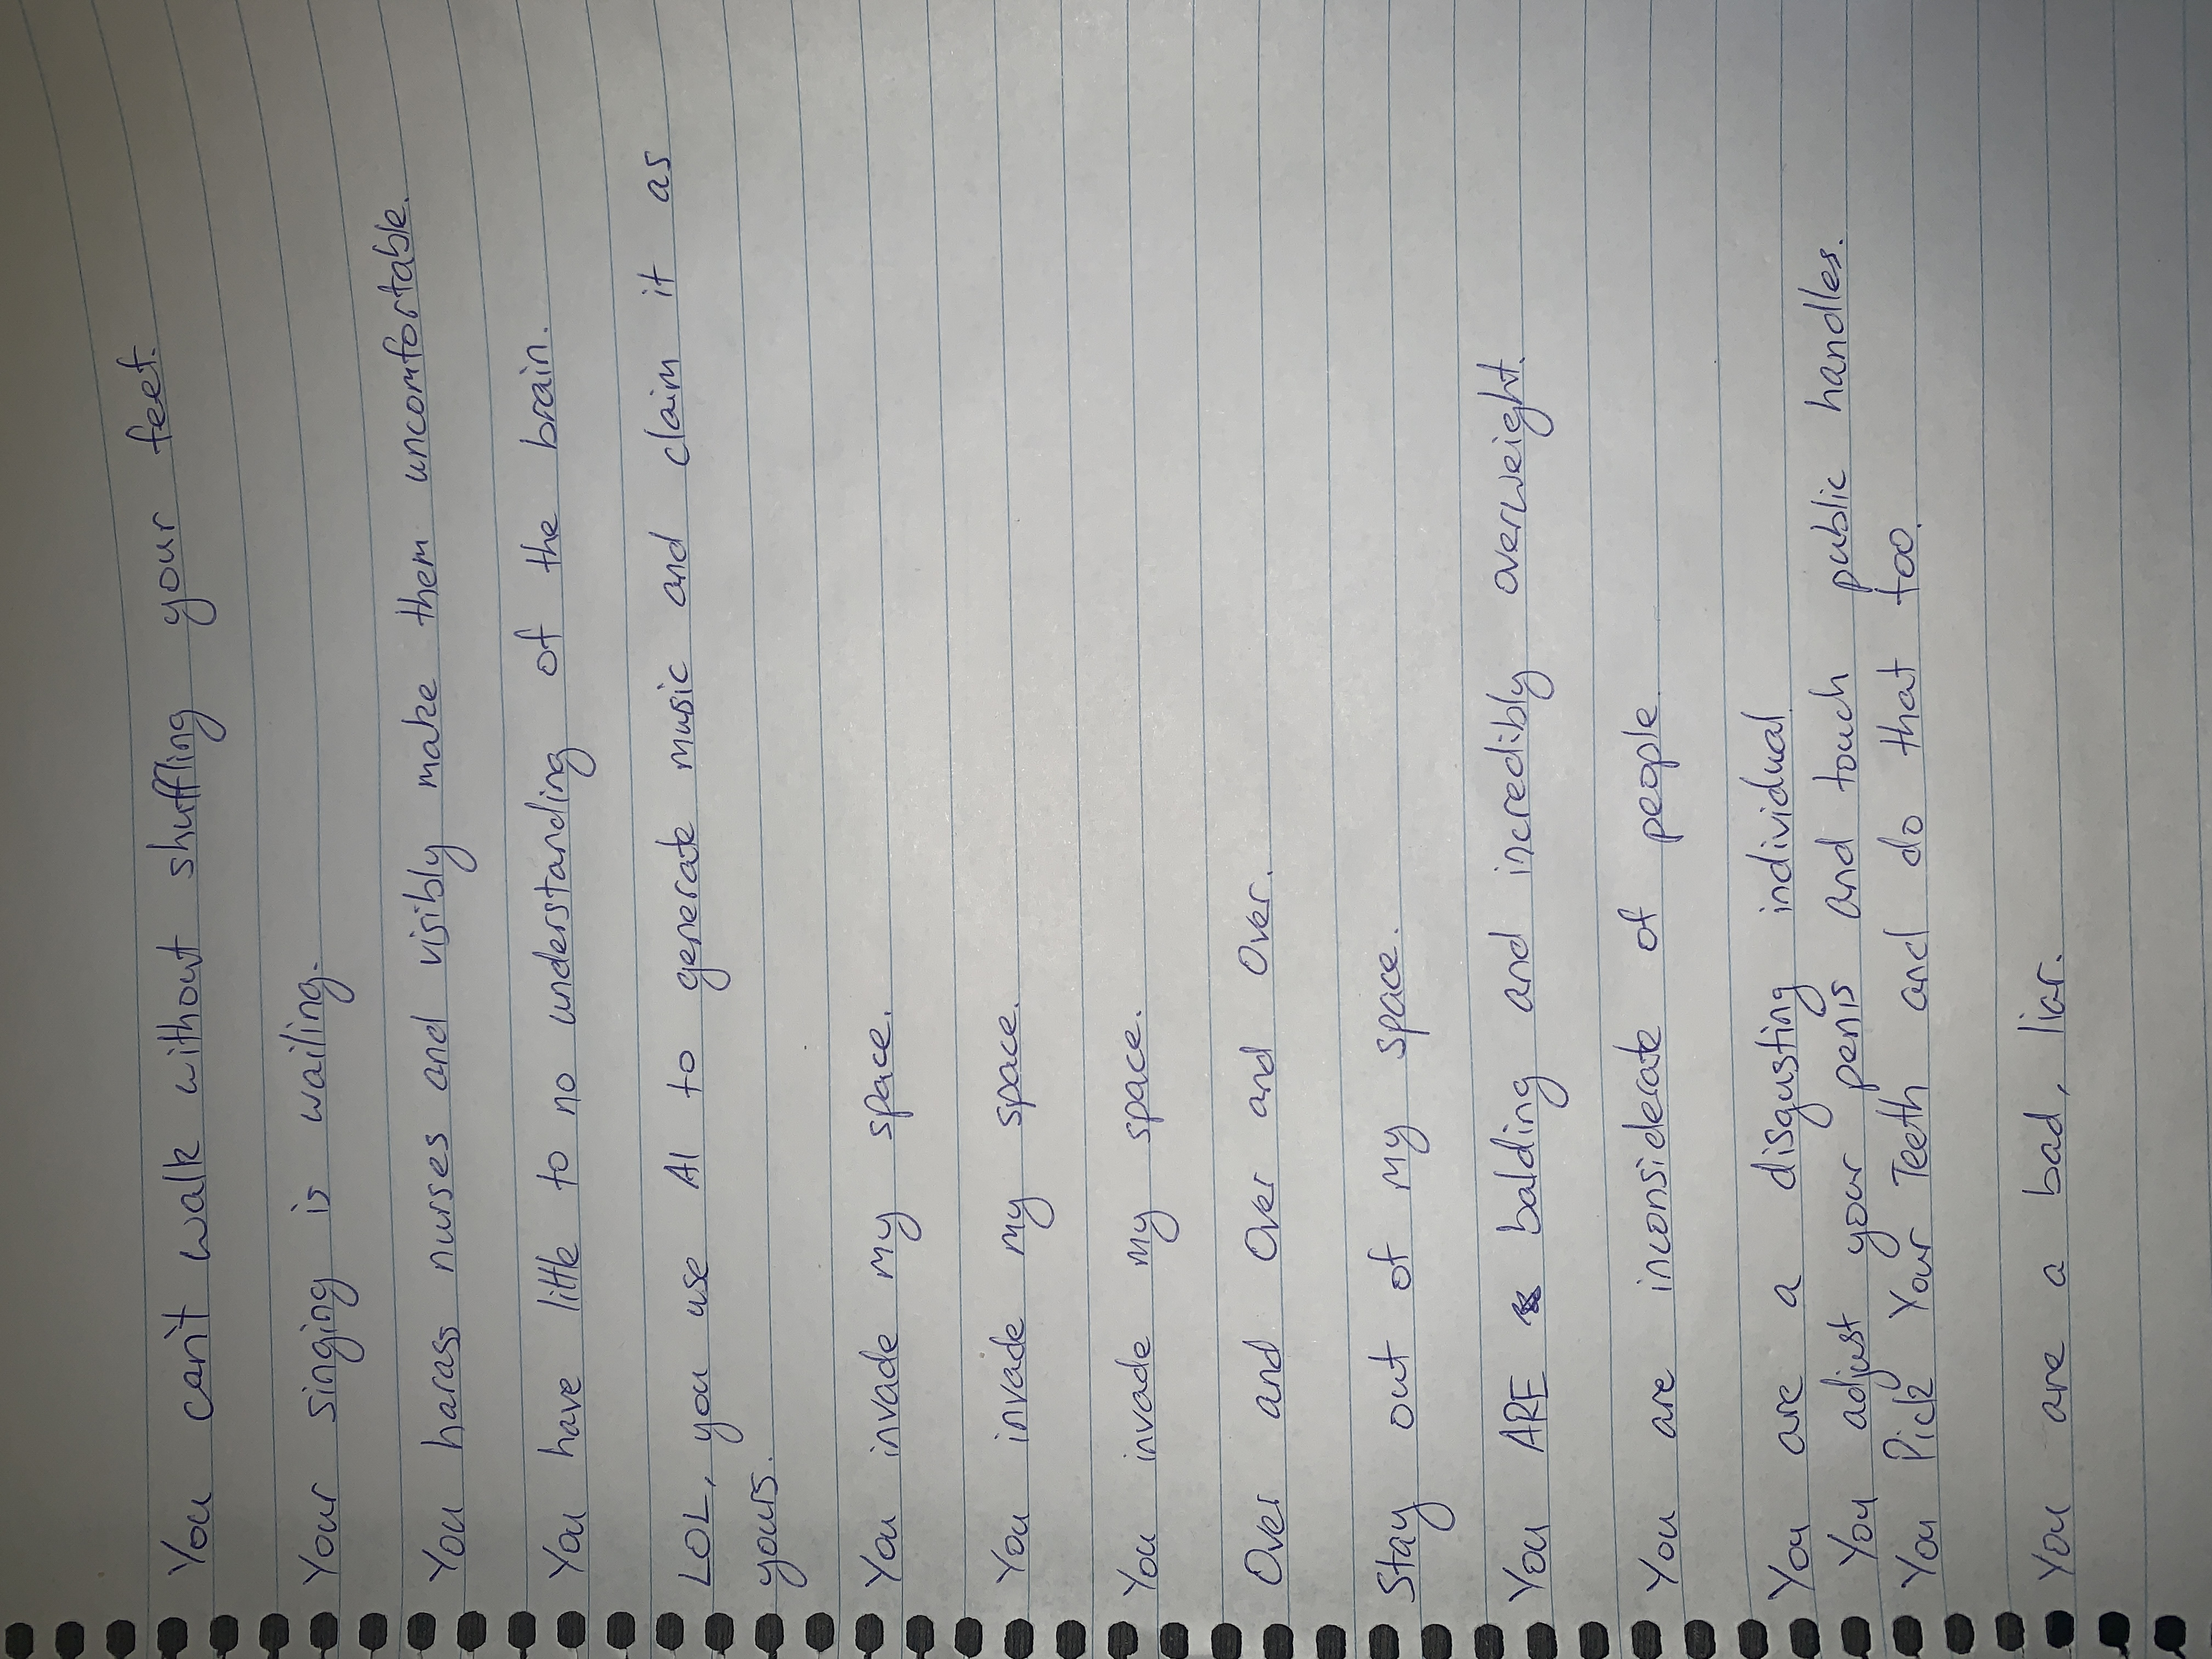 You can't walk without shuffling your feet.
Your singing is wailing.
You harass nurses and visibly make them uncomfortable.
You have little to no understanding of the brain.
LOL, you use AI to generate music and claim it as
yours.
You invade my space.
You invade my space.
You invade my space.
Over and Over and Over.
Stay out of my space.
You ARE balding and incredibly overweight.
You are inconsiderate of people.
You are a disgusting individual
You adjust your penis and touch public handles.
You Pick Your Teeth and do that too.
You are a bad, liar.